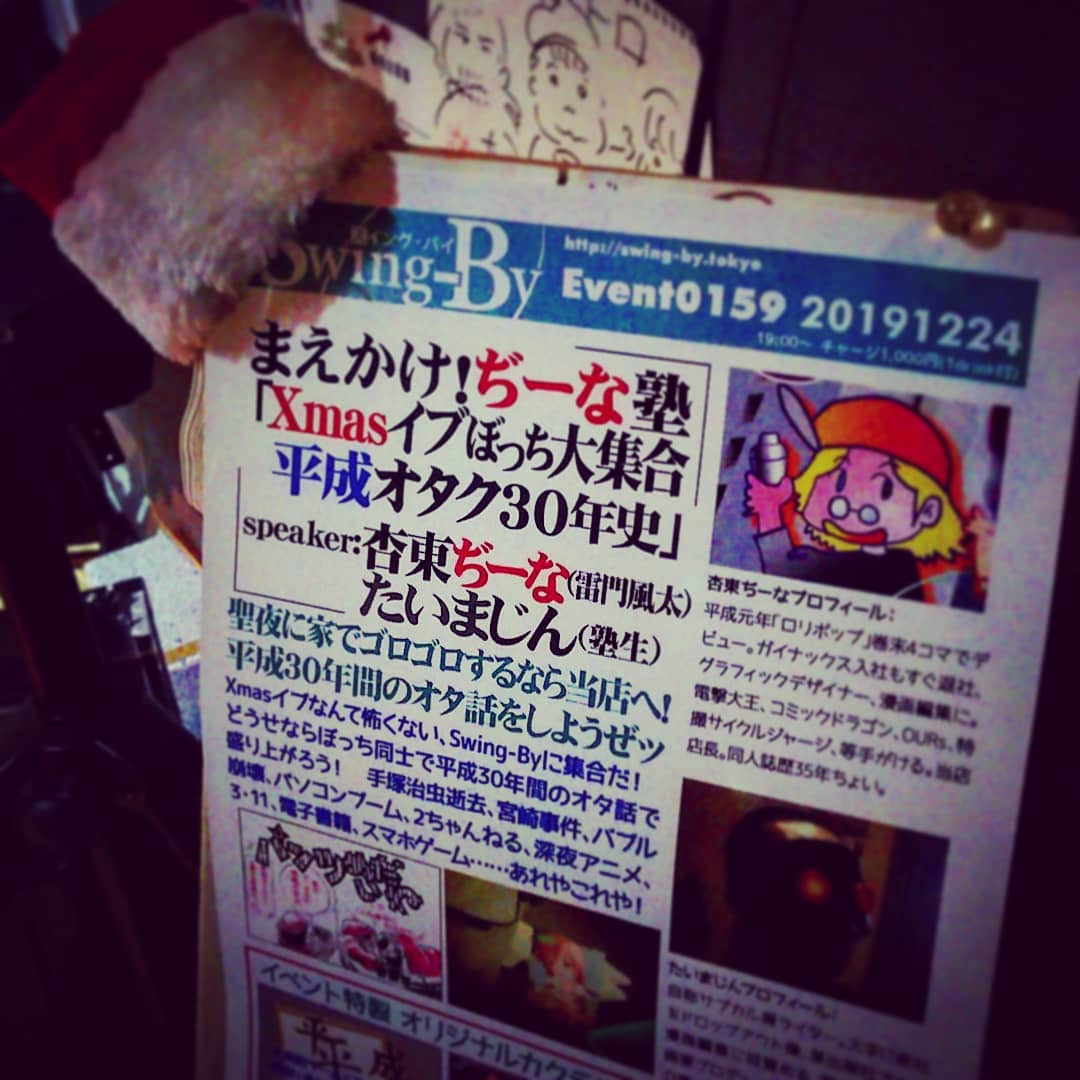 スイング・バイ
Swing-By
http://swing-by.tokyo
Event0159 20191224
19:00〜 チャージ1,000円(1drink付)
まえかけ!ぢーな塾
「Xmasイブぼっち大集合
平成オタク30年史」
speaker:杏東ぢーな(雷門風太)
たいまじん(塾生)
聖夜に家でゴロゴロするなら当店へ!
平成30年間のオタ話をしようぜッ
Xmasイブなんて怖くない、Swing-Byに集合だ!
どうせならぼっち同士で平成30年間のオタ話で
盛り上がろう! 手塚治虫逝去、宮崎事件、バブル
崩壊、パソコンブーム、2ちゃんねる、深夜アニメ、
3・11、電子書籍、スマホゲーム……あれやこれや!
杏東ぢーなプロフィール:
平成元年「ロリポップ」巻末4コマでデ
ビュー。ガイナックス入社もすぐ退社、
グラフィックデザイナー、漫画編集に。
電撃大王、コミックドラゴン、OURs、特
撮サイクルジャージ、等手がける。当店
店長。同人誌歴35年ちょい。
たいまじんプロフィール:
イベント特製 オリジナルカクテ
平成